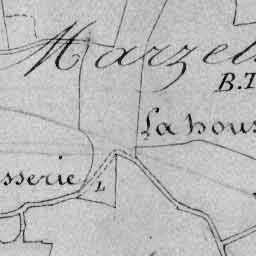 Marzel
B.T
La hous
sserie
L